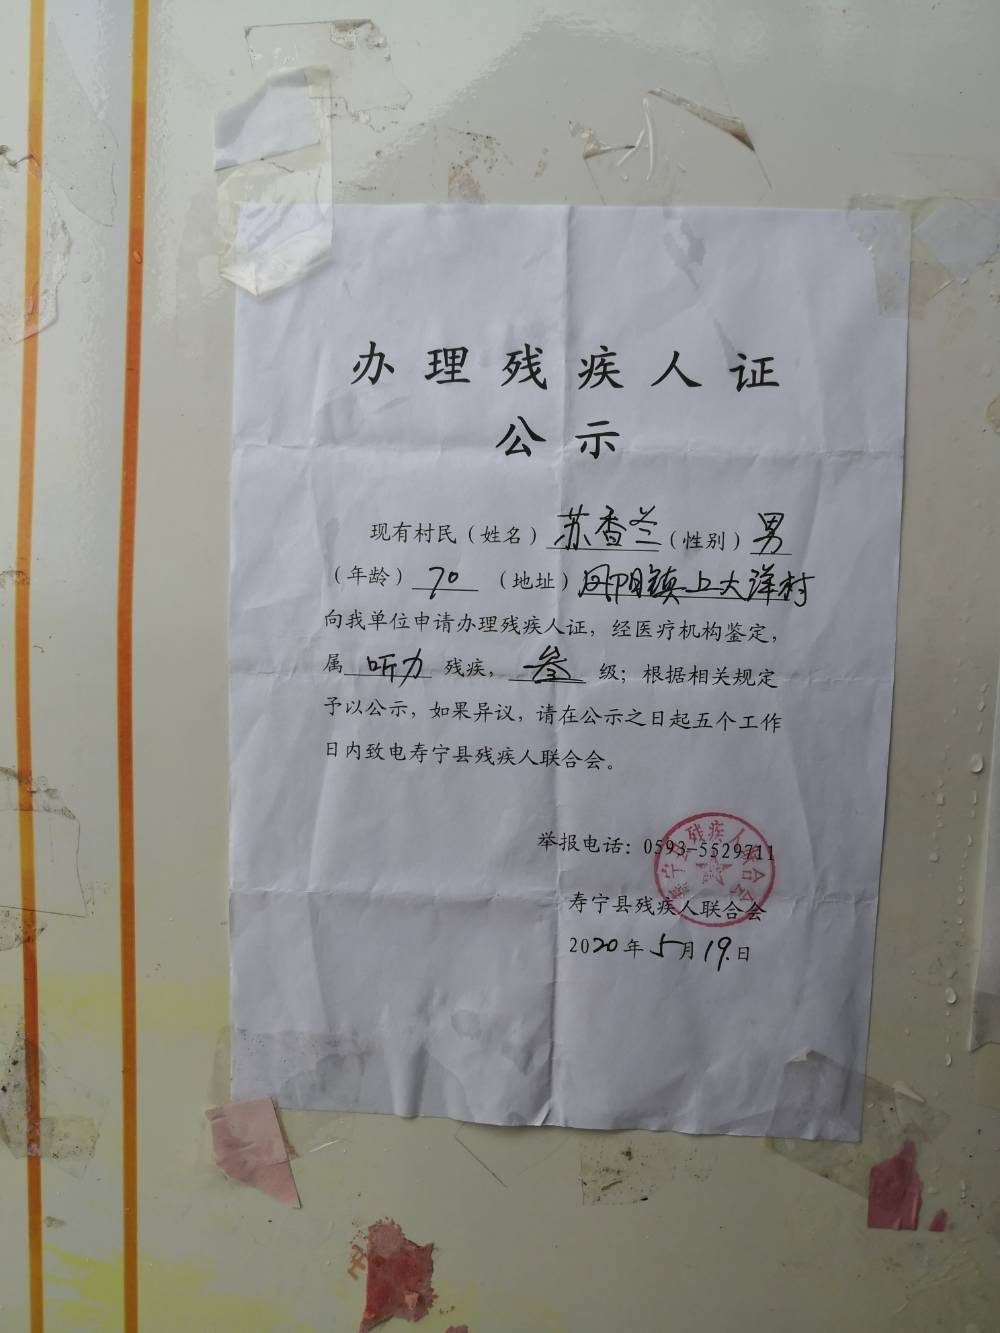 办理残疾人证
公示
现有村民（姓名）苏香兰（性别）男
（年龄）70（地址）凤阳镇上大洋村
向我单位申请办理残疾人证，经医疗机构鉴定，
属听力残疾，叁级；根据相关规定
予以公示，如果异议，请在公示之日起五个工作
日内致电寿宁县残疾人联合会。
举报电话：0593-5529711
寿宁县残疾人联合会
寿宁县残疾人联合会
2020年5月19日